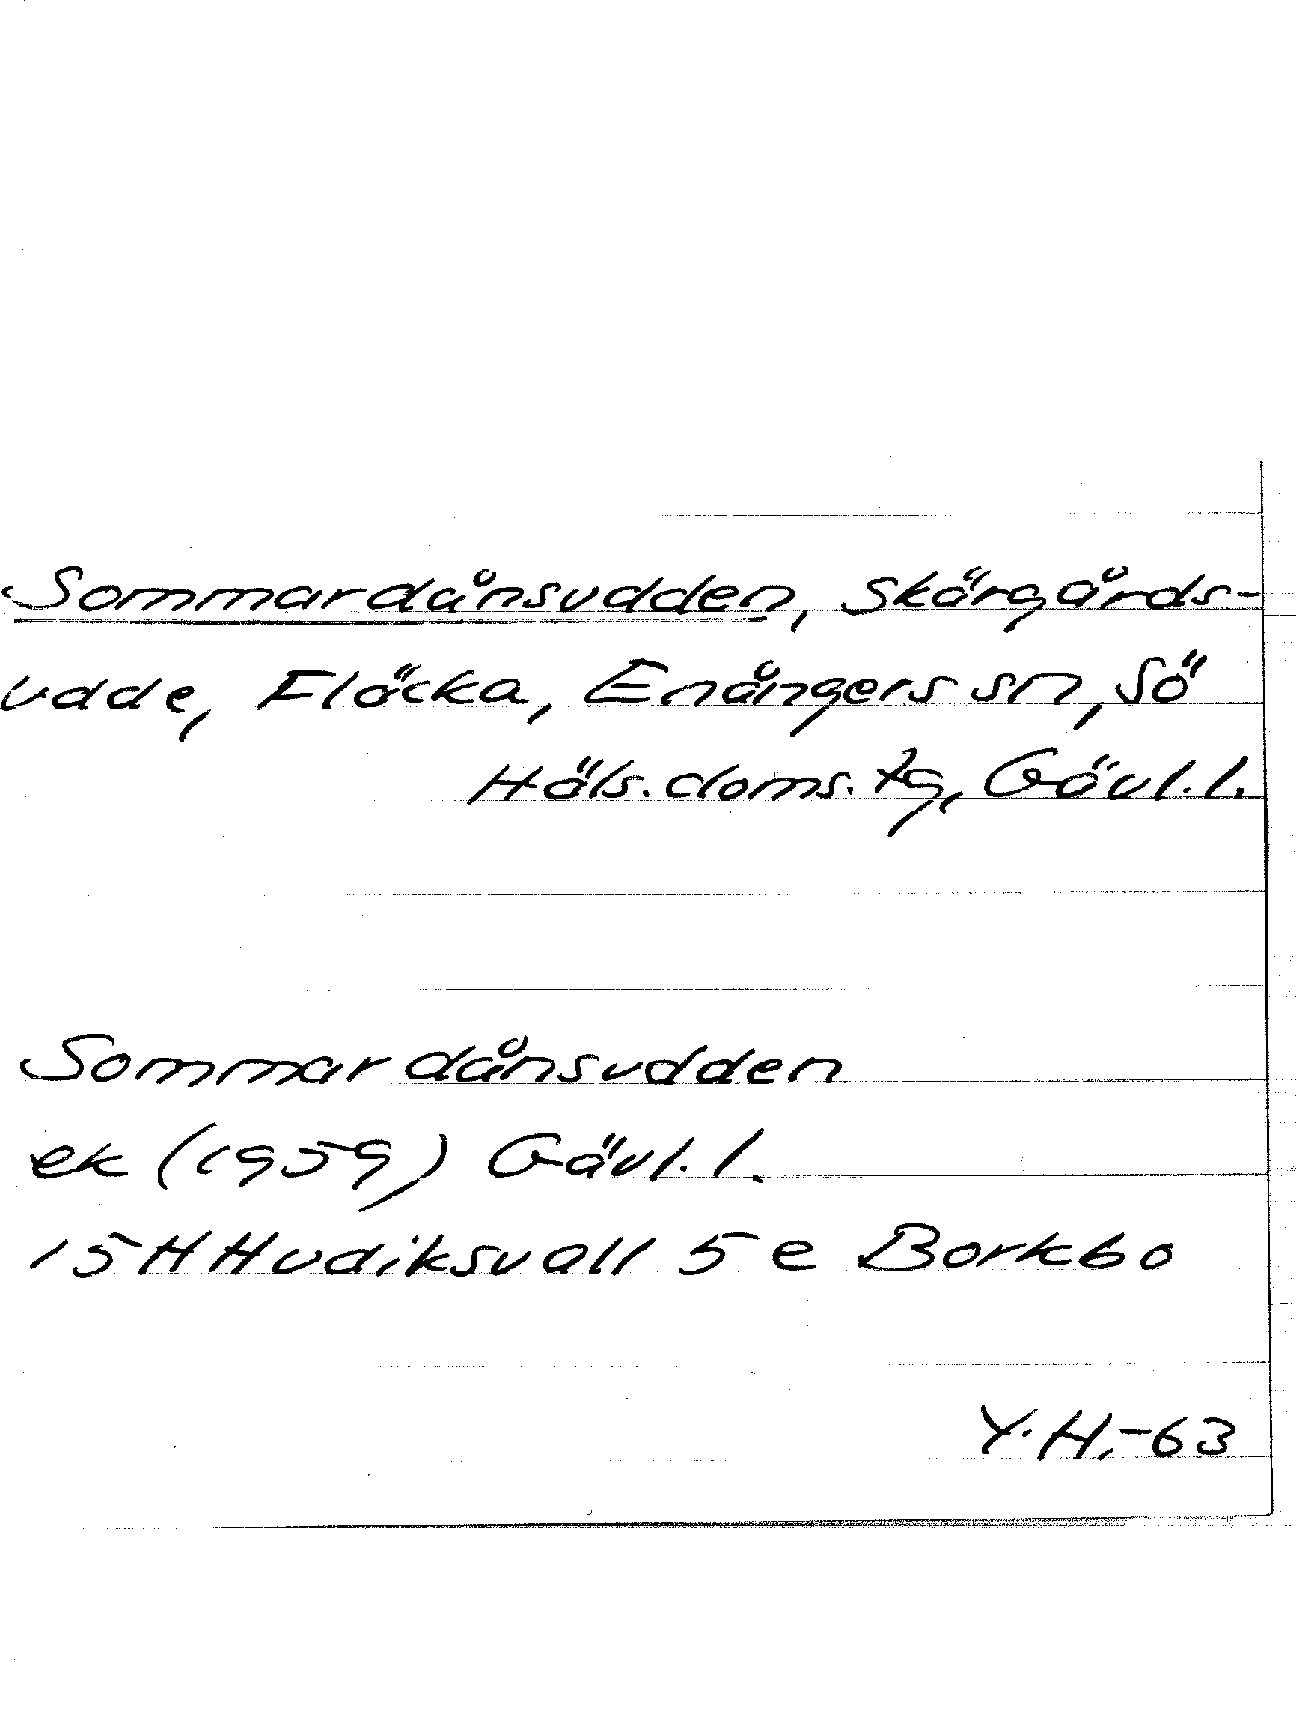 Sommardånsudden, Skärgårds-
udde, Fläcka, Enångers sn, Sö
Häls. doms. tg, Gävl. l.
Sommardånsudden
ek (1959) Gävl. l.
15H Hudiksvall 5 e Borkbo
Y.H.-63